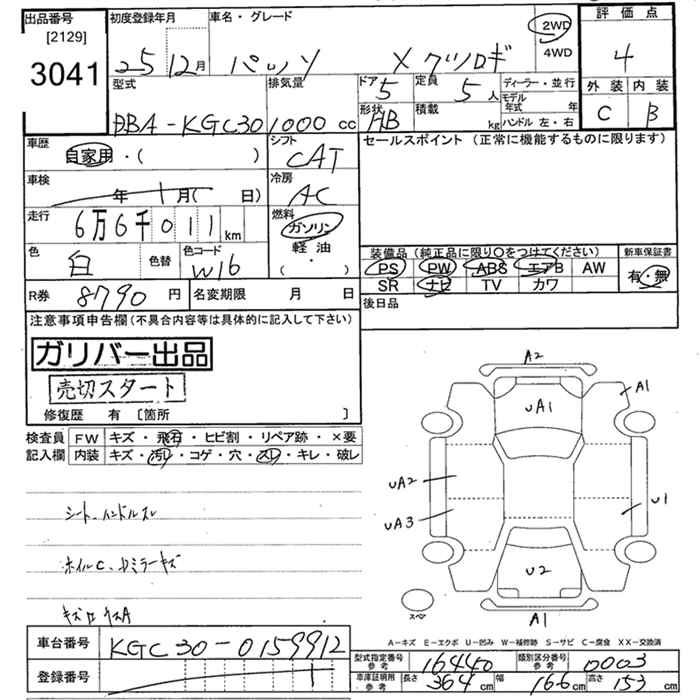 出品番号 初度登録年月 車名・グレード 2WD 評価点
[2129] 25 12月 パッソ X クツロギ 4WD 4
3041 型式 排気量 ドア 5 定員 5人 ディーラー・並行 外装 内装
DBA-KGC30 1000cc 形状 HB 積載 kg モデル年式 年 C B
ハンドル 左・右
車歴 自家用・( ) シフト CAT セールスポイント (正常に機能するものに限ります)
車検 年 月( 日) 冷房 AC
走行 6万6千011km 燃料 ガソリン
軽油
( ・ )
色 白 色替 色コード W16 装備品 (純正品に限り○をつけてください) 新車保証書
PS PW ABS エアB AW 有・無
R券 8790円 名変期限 月 日 SR ナビ TV カワ
注意事項申告欄(不具合内容等は具体的に記入して下さい) 後日品
ガリバー出品
売切スタート
修復歴 有 [箇所 ]
検査員 FW キズ・飛石・ヒビ割・リペア跡・×要
記入欄 内装 キズ・汚レ・コゲ・穴・スレ・キレ・破レ
シート、ハンドルスレ
ホイルC、ドミラーキズ
A2
A1
UA1
UA2
UA3
U1
U2
A1
スペア
A-キズ E-エクボ U-凹み W-補修跡 S-サビ C-腐食 XX-交換済
車台番号 KGC30-0159912
登録番号
型式指定番号 参考 16440 類別区分番号 参考 0003
車庫証明用 参考 長さ 364cm 幅 166cm 高さ 153cm